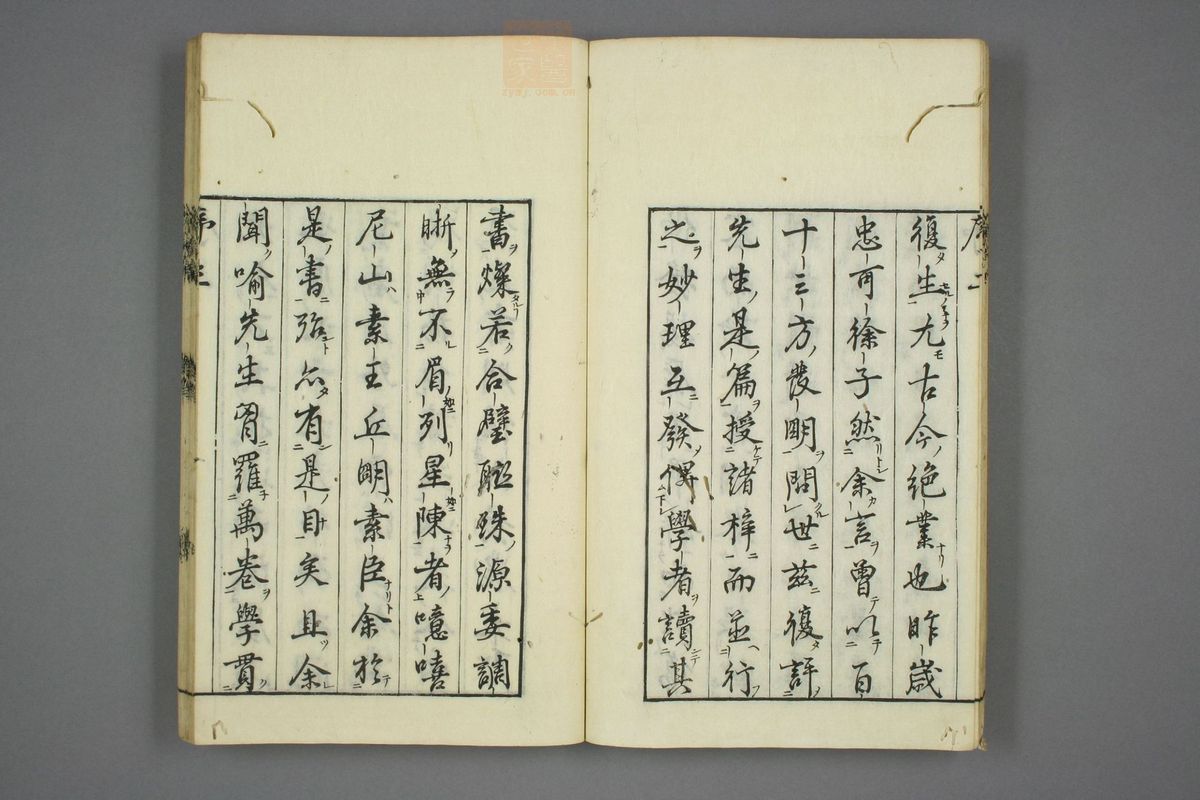 復生尤古今絶業也昨歳
忠可徐子然余言曾以百
十三方發明問世茲復評
先生是篇授諸梓而並行
之妙理互發俾學者讀其
書燦若合璧聯珠源委調
晰無不眉列星陳者噫嘻
尼山素王丘明素臣余於
是書殆亦有是目矣且余
聞喻先生胷羅萬卷學貫
序 三
zysj.com.cn